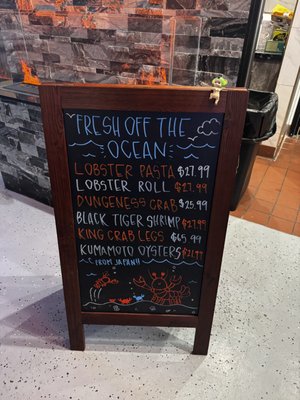 FRESH OFF THE
OCEAN
LOBSTER PASTA $27.99
LOBSTER ROLL $27.99
DUNGENESS CRAB $25.99
BLACK TIGER SHRIMP $27.99
KING CRAB LEGS $65.99
KUMAMOTO OYSTERS $21.99
FROM JAPAN!!